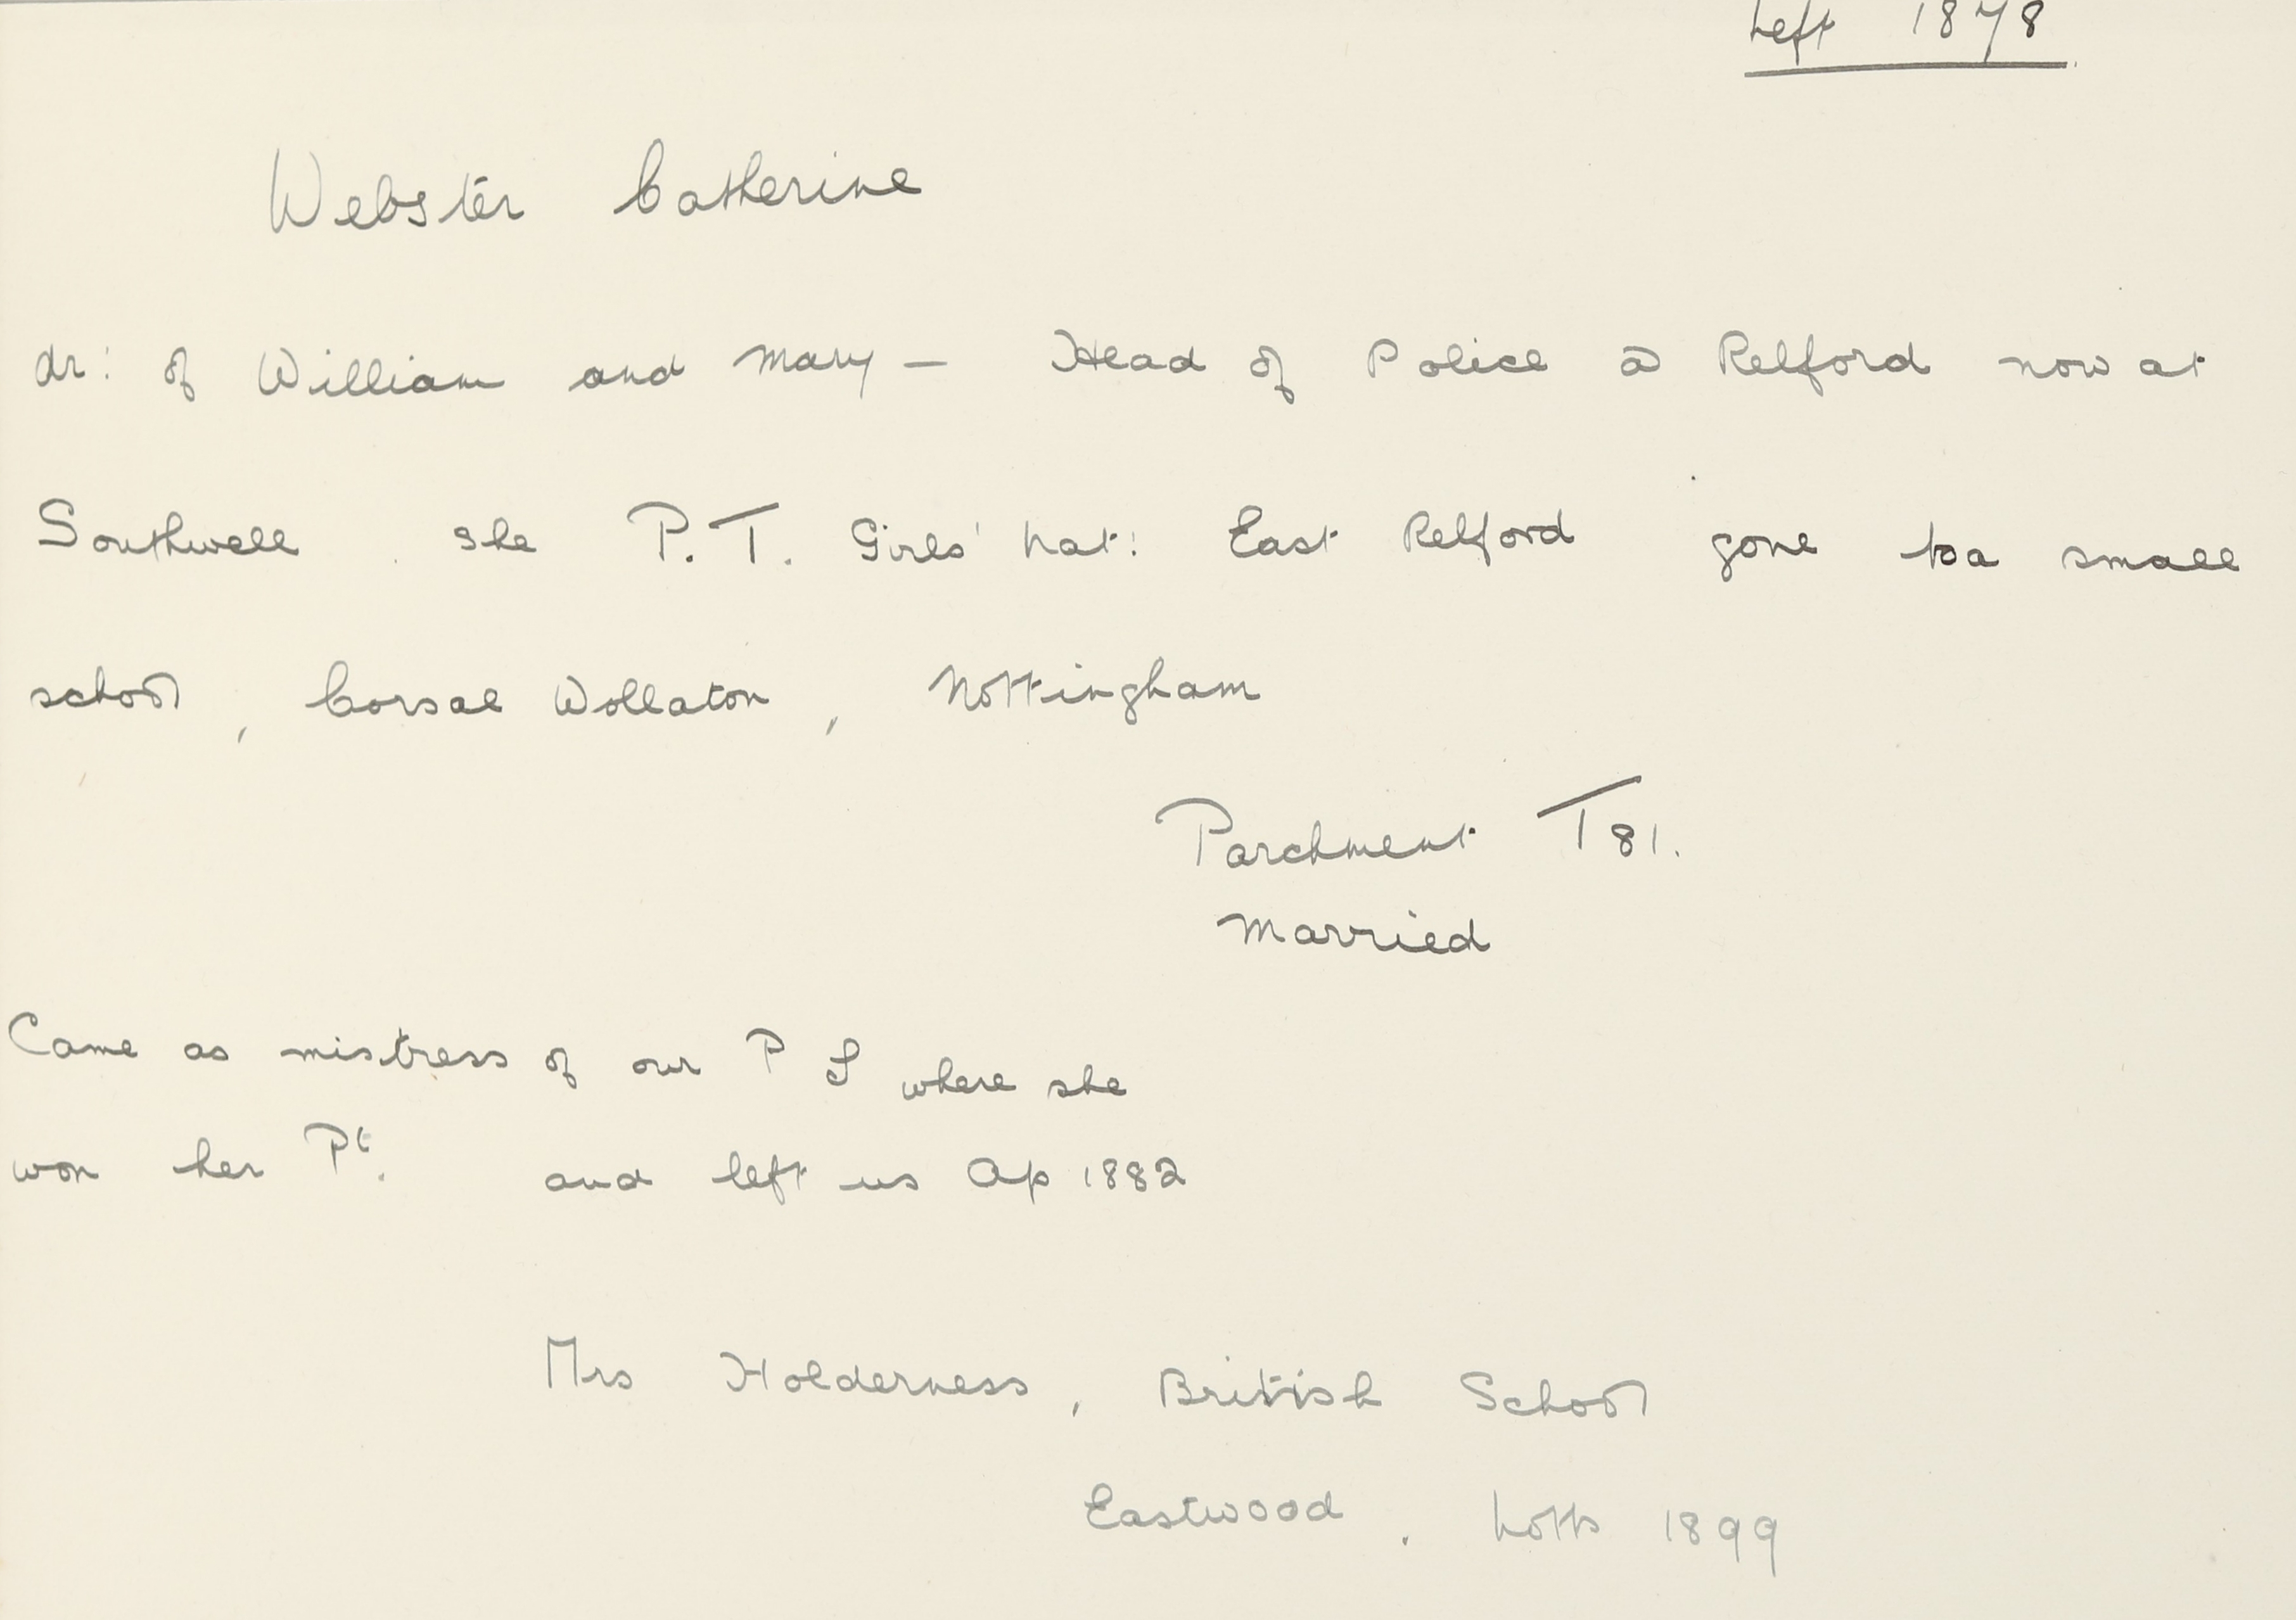 Left 1878
Webster Catherine
dr: of William and Mary - Head of Police @ Retford now at
Southwell . She P.T. Girls' Nat: East Retford gone to a small
school , Cossal Wollaton , Nottingham
Parchment T 81.
Married
Came as mistress of our P S where she
won her Pt. and left us Ap 1882
Mrs Holderness , British School
Eastwood . Notts 1899